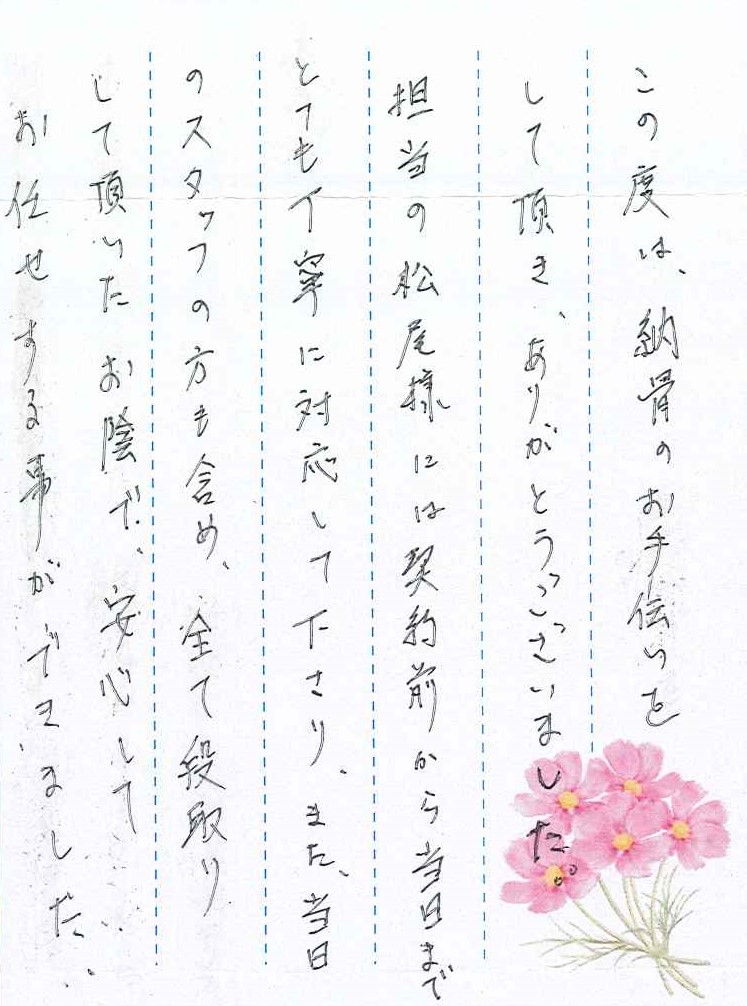 この度は、納骨のお手伝いを
して頂き、ありがとうございました。
担当の松尾様には契約前から当日まで
とても丁寧に対応して下さり、また、当日
のスタッフの方も含め、全て段取り
して頂いたお陰で、安心して
お任せする事ができました。